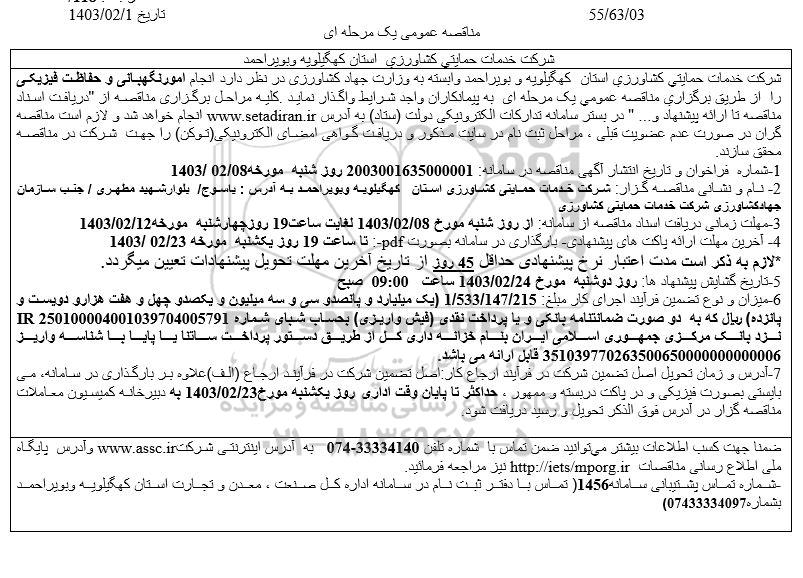 تاریخ 1403/02/1 55/63/03
مناقصه عمومی یک مرحله ای
شرکت خدمات حمایتي کشاورزي استان کهگیلویه وبویراحمد
شرکت خدمات حمایتي کشاورزي استان کهگیلویه و بویراحمد وابسته به وزارت جهاد کشاورزی در نظر دارد انجام امورنگهبانی و حفاظت فیزیکی
را از طریق برگزاري مناقصه عمومي یک مرحله ای به پیمانکاران واجد شرایط واگذار نماید .کلیه مراحل برگزاری مناقصه از "دریافت اسناد
مناقصه تا ارائه پیشنهاد و... " در بستر سامانه تدارکات الکترونیکی دولت (ستاد) به آدرس www.setadiran.ir انجام خواهد شد و لازم است مناقصه
گران در صورت عدم عضویت قبلی ، مراحل ثبت نام در سایت مذکور و دریافت گواهی امضای الکترونیکی(توکن) را جهت شرکت در مناقصه
محقق سازند.
1-شماره فراخوان و تاریخ انتشار آگهی مناقصه در سامانه: 2003001635000001 روز شنبه مورخه02/08 /1403
2- نام و نشانی مناقصه گزار: شرکت خدمات حمایتی کشاورزی استان کهگیلویه وبویراحمد به آدرس : یاسوج/ بلوارشهید مطهری / جنب سازمان
جهادکشاورزی شرکت خدمات حمایتی کشاورزی
3-مهلت زمانی دریافت اسناد مناقصه از سامانه: از روز شنبه مورخ 1403/02/08 لغایت ساعت19 روزچهارشنبه مورخه1403/02/12
4- آخرین مهلت ارائه پاکت های پیشنهادی- بارگذاری در سامانه بصورت pdf-: تا ساعت 19 روز یکشنبه مورخه 02/23 /1403
*لازم به ذکر است مدت اعتبار نرخ پیشنهادی حداقل 45 روز از تاریخ آخرین مهلت تحویل پیشنهادات تعیین میگردد.
5-تاریخ گشایش پیشنهاد ها: روز دوشنبه مورخ 1403/02/24 ساعت 09:00 صبح
6-میزان و نوع تضمین فرآیند اجرای کار مبلغ: 1/533/147/215 (یک میلیارد و پانصدو سی و سه میلیون و یکصدو چهل و هفت هزارو دویست و
پانزده) ریال که به دو صورت ضمانتنامه بانکی و یا پرداخت نقدی (فیش واریزی) بحساب شبای شماره IR 250100004001039704005791
نزد بانک مرکزی جمهوری اسلامی ایران بنام خزانه داری کل از طریق دستور پرداخت ساتنا یا پایا با شناسه واریز
351039770263500650000000000006 قابل ارائه می باشد.
7-آدرس و زمان تحویل اصل تضمین شرکت در فرآیند ارجاع کار:اصل تضمین شرکت در فرآیند ارجاع (الف)علاوه بر بارگذاری در سامانه، می
بایستی بصورت فیزیکی و در پاکت دربسته و ممهور ، حداکثر تا پایان وقت اداری روز یکشنبه مورخ1403/02/23 به دبیرخانه کمیسیون معاملات
مناقصه گزار در آدرس فوق الذکر تحویل و رسید دریافت شود.
ضمنا جهت کسب اطلاعات بیشتر می‌توانید ضمن تماس با شماره تلفن 33334140-074 به آدرس اینترنتی شرکتwww.assc.ir وآدرس پایگاه
ملی اطلاع رسانی مناقصات http://iets/mporg.ir نیز مراجعه فرمائید.
-شماره تماس پشتیبانی سامانه1456( تماس با دفتر ثبت نام در سامانه اداره کل صنعت ، معدن و تجارت استان کهگیلویه وبویراحمد
بشماره07433334097)